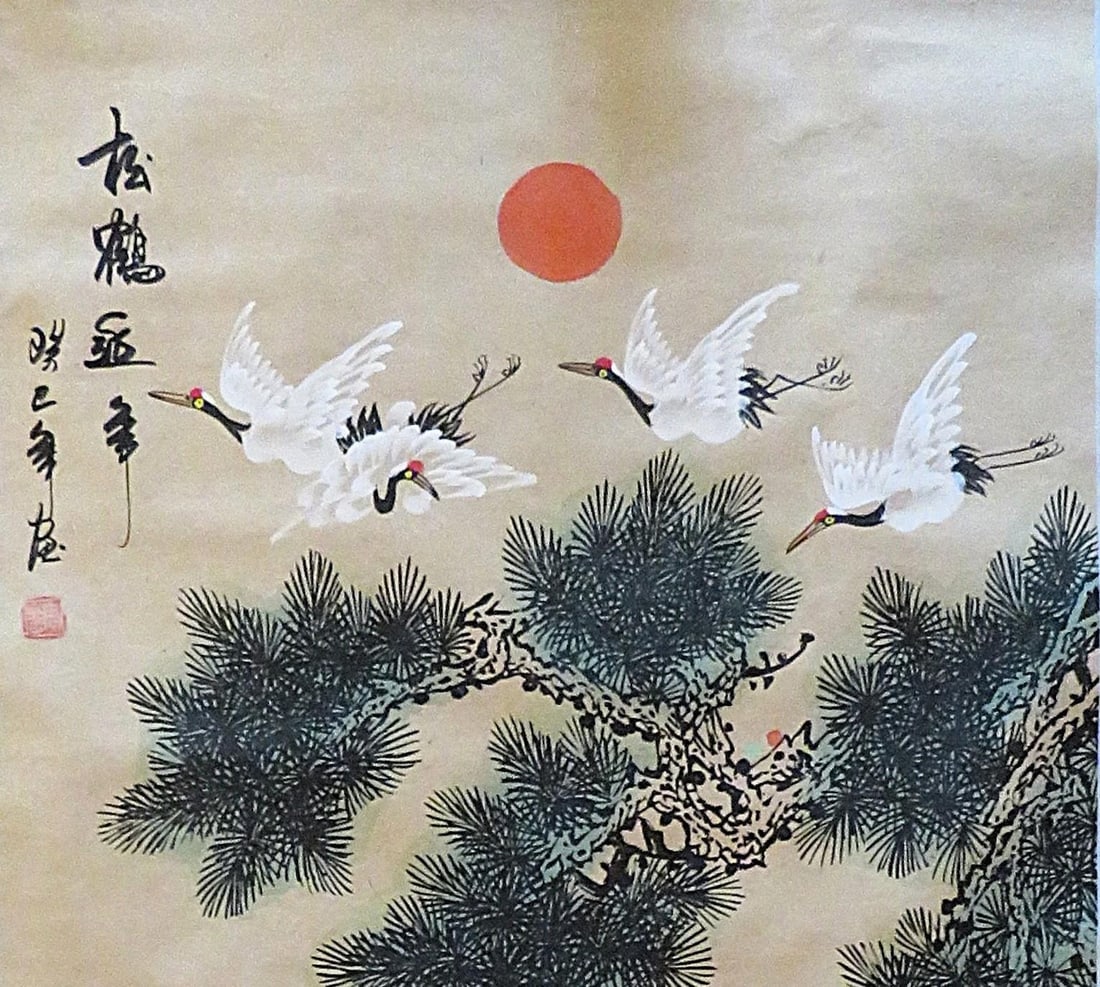 松鶴延年
癸巳年画